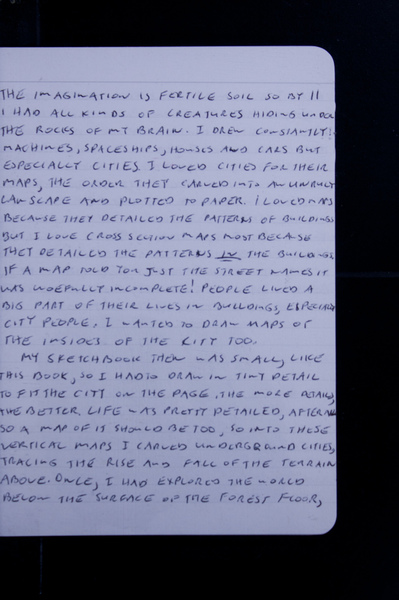 THE IMAGINATION IS FERTILE SOIL SO BY 11
I HAD ALL KINDS OF CREATURES HIDING UNDER
THE ROCKS OF MY BRAIN. I DREW CONSTANTLY:
MACHINES, SPACESHIPS, HOUSES AND CARS BUT
ESPECIALLY CITIES. I LOVED CITIES FOR THEIR
MAPS, THE ORDER THEY CARVED INTO AN UNRULY
LANSCAPE AND PLOTTED TO PAPER. I LOVED MAPS
BECAUSE THEY DETAILED THE PATTERNS OF BUILDINGS
BUT I LOVE CROSS SECTION MAPS MOST BECAUSE
THEY DETAILED THE PATTERNS IN THE BUILDINGS
IF A MAP TOLD YOU JUST THE STREET NAMES IT
WAS WOEFULLY INCOMPLETE! PEOPLE LIVED A
BIG PART OF THEIR LIVES IN BUILDINGS, ESPECIALLY
CITY PEOPLE. I WANTED TO DRAW MAPS OF
THE INSIDES OF THE CITY TOO.
MY SKETCHBOOK THEN WAS SMALL, LIKE
THIS BOOK, SO I HAD TO DRAW IN TINY DETAIL
TO FIT THE CITY ON THE PAGE. THE MORE DETAILS,
THE BETTER. LIFE WAS PRETTY DETAILED, AFTER ALL
SO A MAP OF IT SHOULD BE TOO, SO INTO THESE
VERTICAL MAPS I CARVED UNDERGROUND CITIES,
TRACING THE RISE AND FALL OF THE TERRAIN
ABOVE. ONCE, I HAD EXPLORED THE WORLD
BELOW THE SURFACE OF THE FOREST FLOOR,